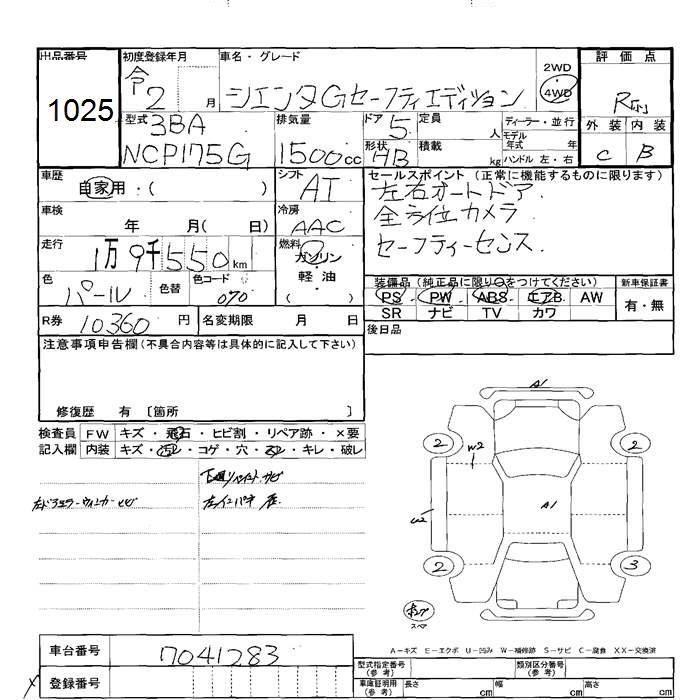 出品番号
1025
初度登録年月
令 2 月
車名・グレード
シエンタGセーフティエディション
2WD
4WD
評価点
外装 内装
C B
型式
3BA
NCP175G
排気量
1500cc
ドア 5
形状 HB
定員 人
積載 kg
ディーラー・並行
モデル年式 年
ハンドル 左・右
車歴
自家用・( )
シフト
AT
セールスポイント (正常に機能するものに限ります)
左右オートドア
全方位カメラ
セーフティーセンス
車検
年 月( 日)
冷房
AAC
走行
1万9千550km
燃料
ガソリン
軽・油
( )
色
パール
色替
色コード
070
装備品 (純正品に限り○をつけてください)
PS PW ABS エアB AW
SR ナビ TV カワ
新車保証書
有・無
R券 10360 円
名変期限 月 日
後日品
注意事項申告欄(不具合内容等は具体的に記入して下さい)
修復歴 有 〔箇所 〕
検査員
記入欄
FW キズ・飛石・ヒビ割・リペア跡・×要
内装 キズ・汚レ・コゲ・穴・スレ・キレ・破レ
A1
2 2
W2
A1
W2
2 3
スペア
A-キズ E-エクボ U-凹み W-補修跡 S-サビ C-腐食 XX-交換済
車台番号 7041283
登録番号
型式指定番号
(参考)
類別区分番号
(参考)
車庫証明用
(参考)
長さ cm 幅 cm 高さ cm